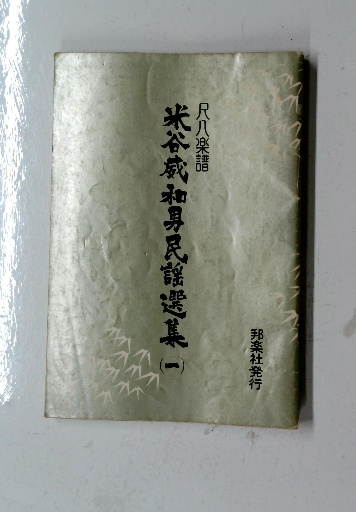 尺八楽譜
米谷威和男民謡選集(一)
邦楽社発行